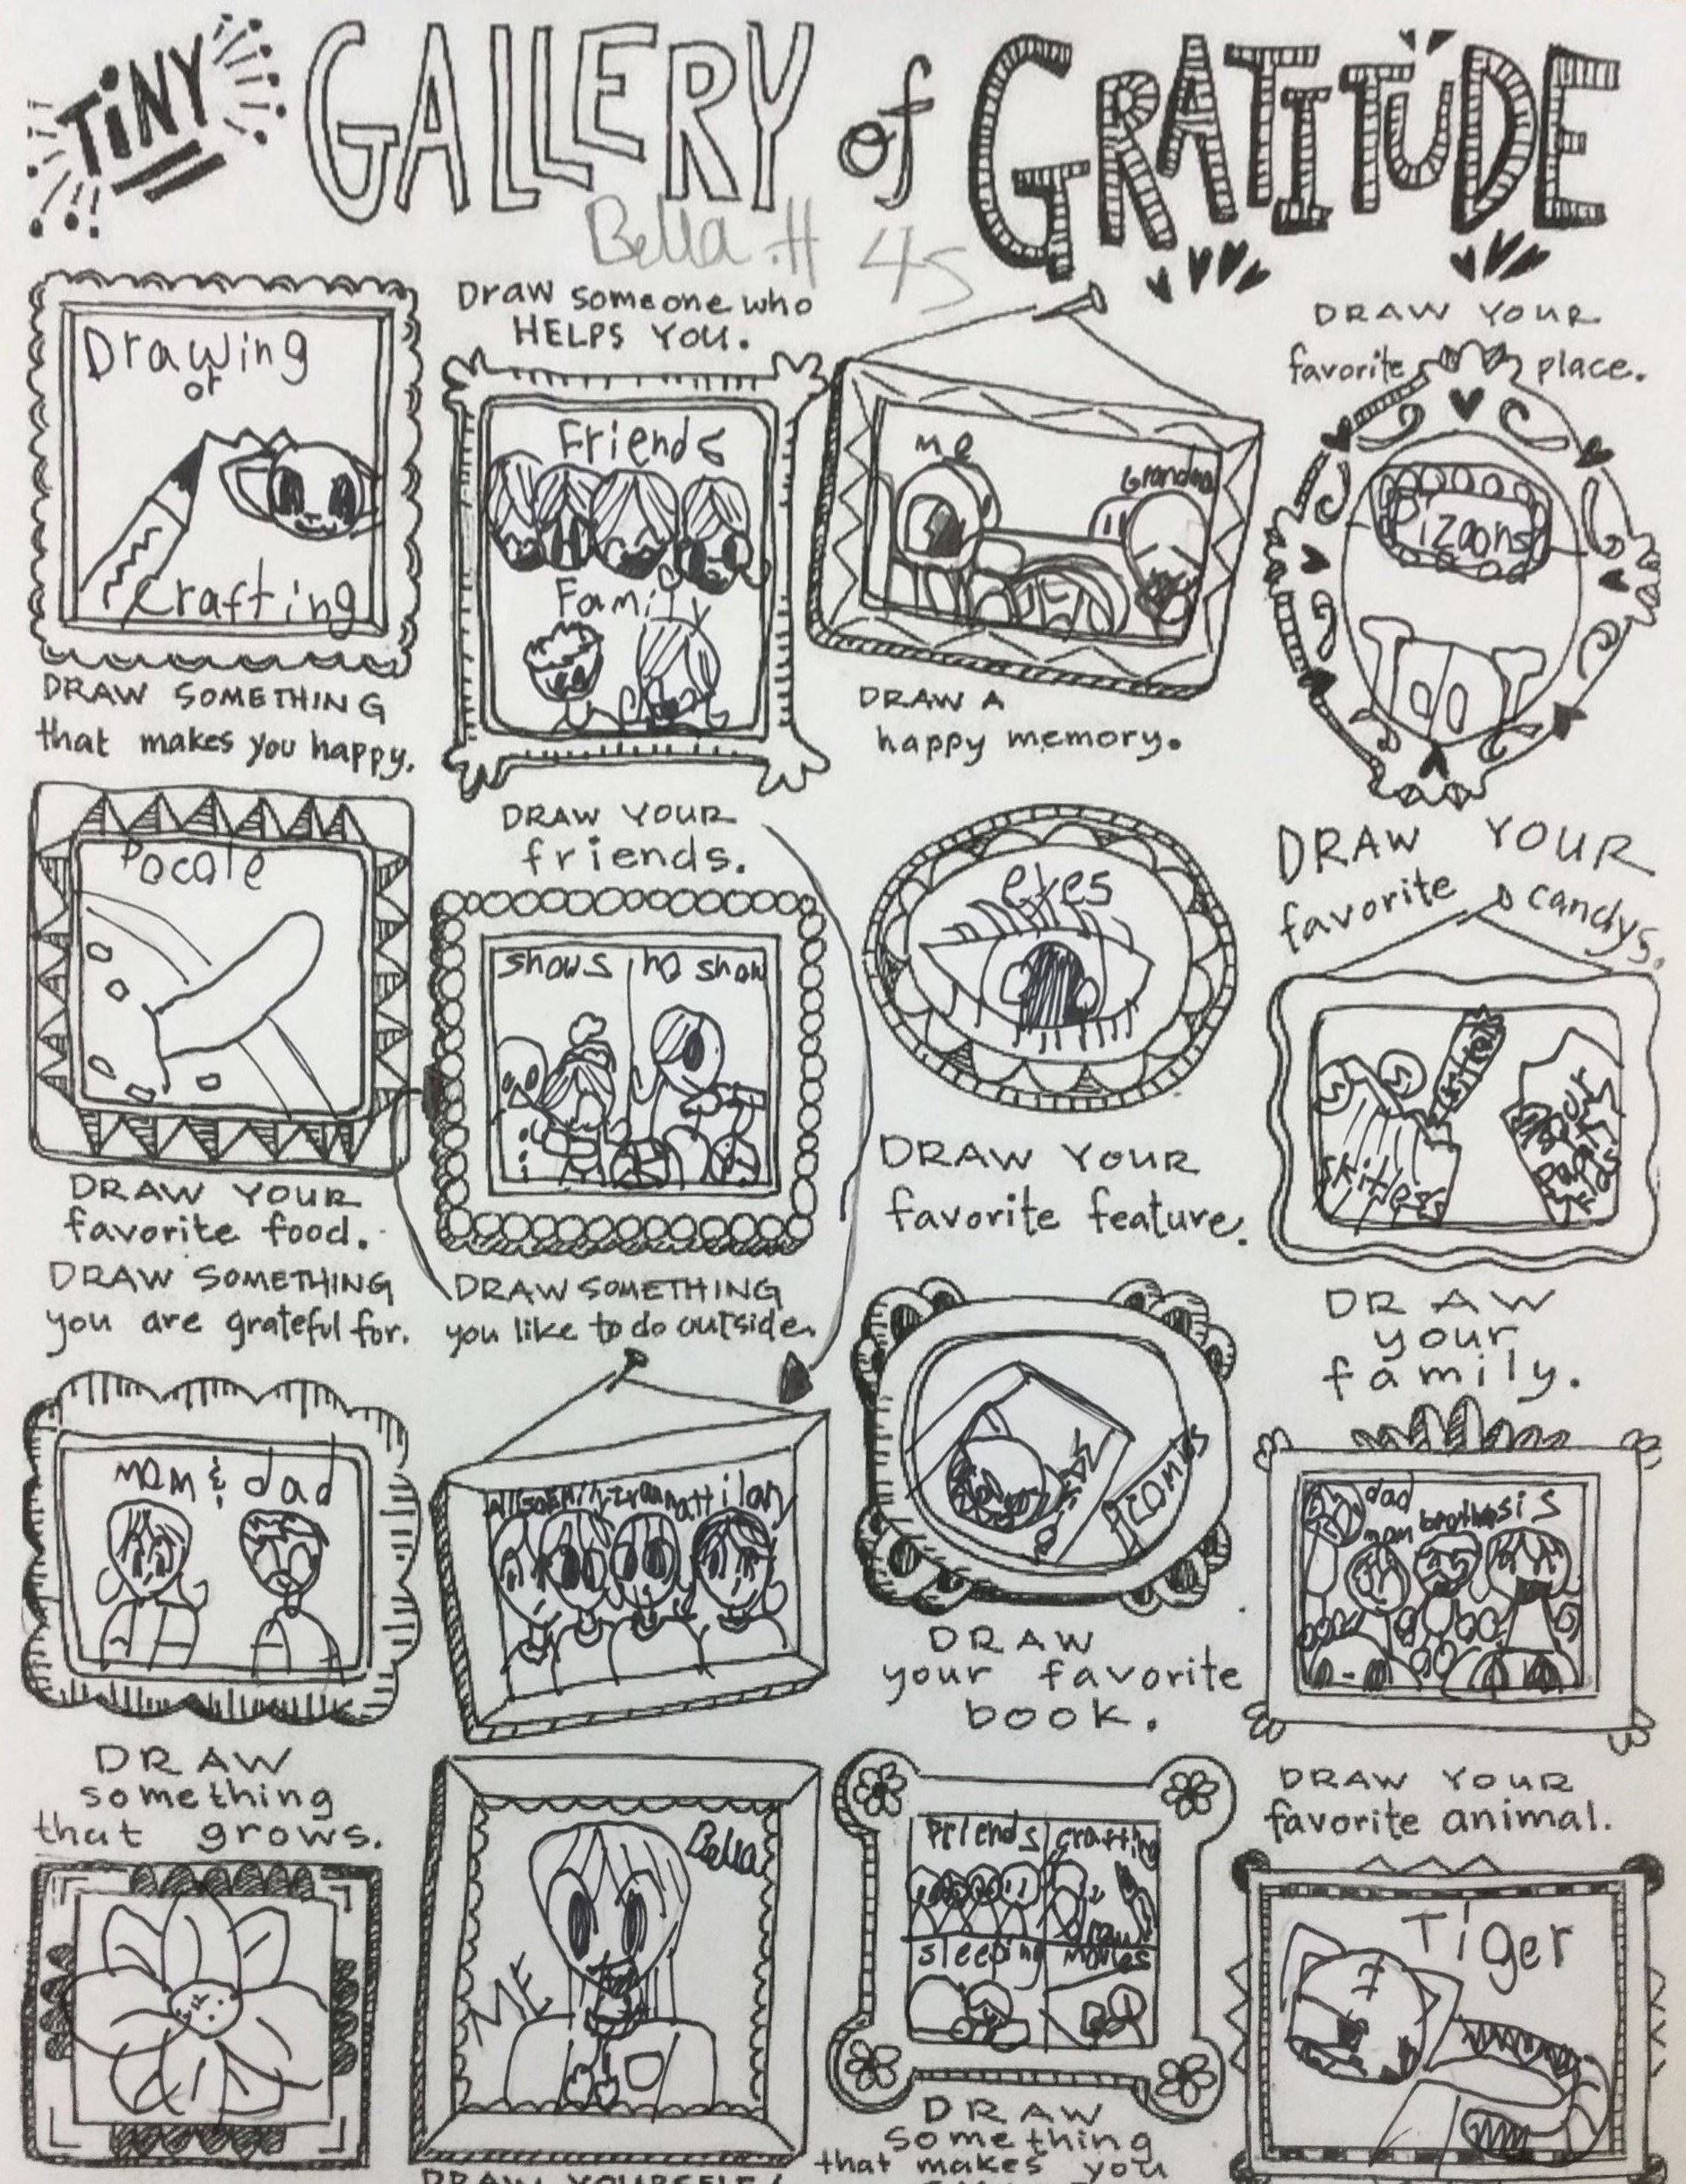 TiNY GALLERY of GRATITUDE
Bella .H 4S
Drawing
or
Crafting
DRAW SOMETHING
that makes you happy.
Draw someone who
HELPS YOU.
Friends
Family
me
Grandma
DRAW A
happy memory.
DRAW YOUR
favorite place.
Pizoons
Pocole
DRAW YOUR
favorite food.
DRAW YOUR
friends.
shows no show
eyes
DRAW YOUR
favorite feature.
DRAW YOUR
favorite candys.
skitles
sour
DRAW SOMETHING
you are grateful for.
mom & dad
DRAW SOMETHING
you like to do outside.
ilany
COMICS
DRAW
your favorite
book.
DRAW
your
family.
dad
mom brother sis
DRAW
something
that grows.
Bella
ME
DRAW YOURSELF!
friends crafting
draw
sleeping movies
DRAW
something
that makes you
DRAW YOUR
favorite animal.
Tiger